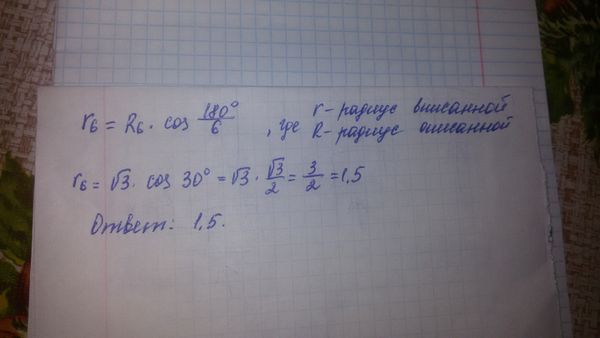 r₆ = R₆ · cos 180°/6 , где r - радиус вписанной
R - радиус описанной
r₆ = √3 · cos 30° = √3 · √3/2 = 3/2 = 1,5
Ответ: 1,5.